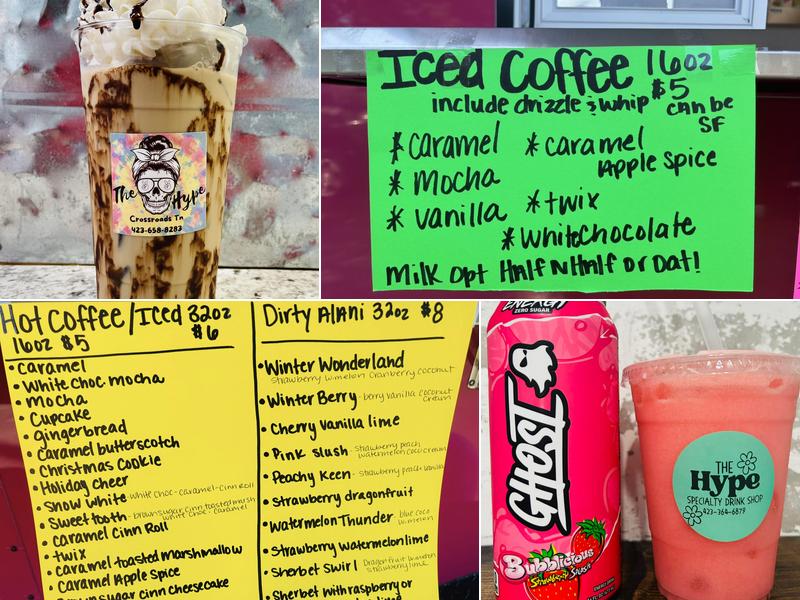 The Hype
Crossroads Tn
423-658-8283
Iced Coffee 16oz
$5
include drizzle & whip
can be
SF
* caramel
* mocha
* vanilla
* caramel
Apple Spice
* twix
* White Chocolate
Milk opt Half N Half or Oat!
Hot Coffee/Iced 32oz
16oz $5
$6
• Caramel
• White choc mocha
• Mocha
• Cupcake
• gingerbread
• Caramel butterscotch
• Christmas Cookie
• Holiday cheer
• Snow White - white choc - caramel - cinn Roll
• Sweet tooth - brown sugar cinn toasted marsh
white choc - caramel
• Caramel Cinn Roll
• twix
• Caramel toasted marshmallow
• Caramel Apple Spice
Brown sugar cinn cheesecake
Dirty Alani 32oz $8
• Winter Wonderland
strawberry w.melon cranberry coconut
• Winter Berry - berry vanilla coconut
cream
• Cherry vanilla lime
• Pink slush - strawberry peach
watermelon coco cream
• Peachy Keen - strawberry peach vanilla
• Strawberry dragonfruit
• Watermelon Thunder blue coco
w.melon
• Strawberry watermelon lime
• Sherbet Swirl Dragonfruit w.melon
strawberry lime
• Sherbet with raspberry or
ENERGY
ZERO SUGAR
GHOST
Bubblicious
Strawberry Splash
THE
Hype
SPECIALTY DRINK SHOP
423-364-6879